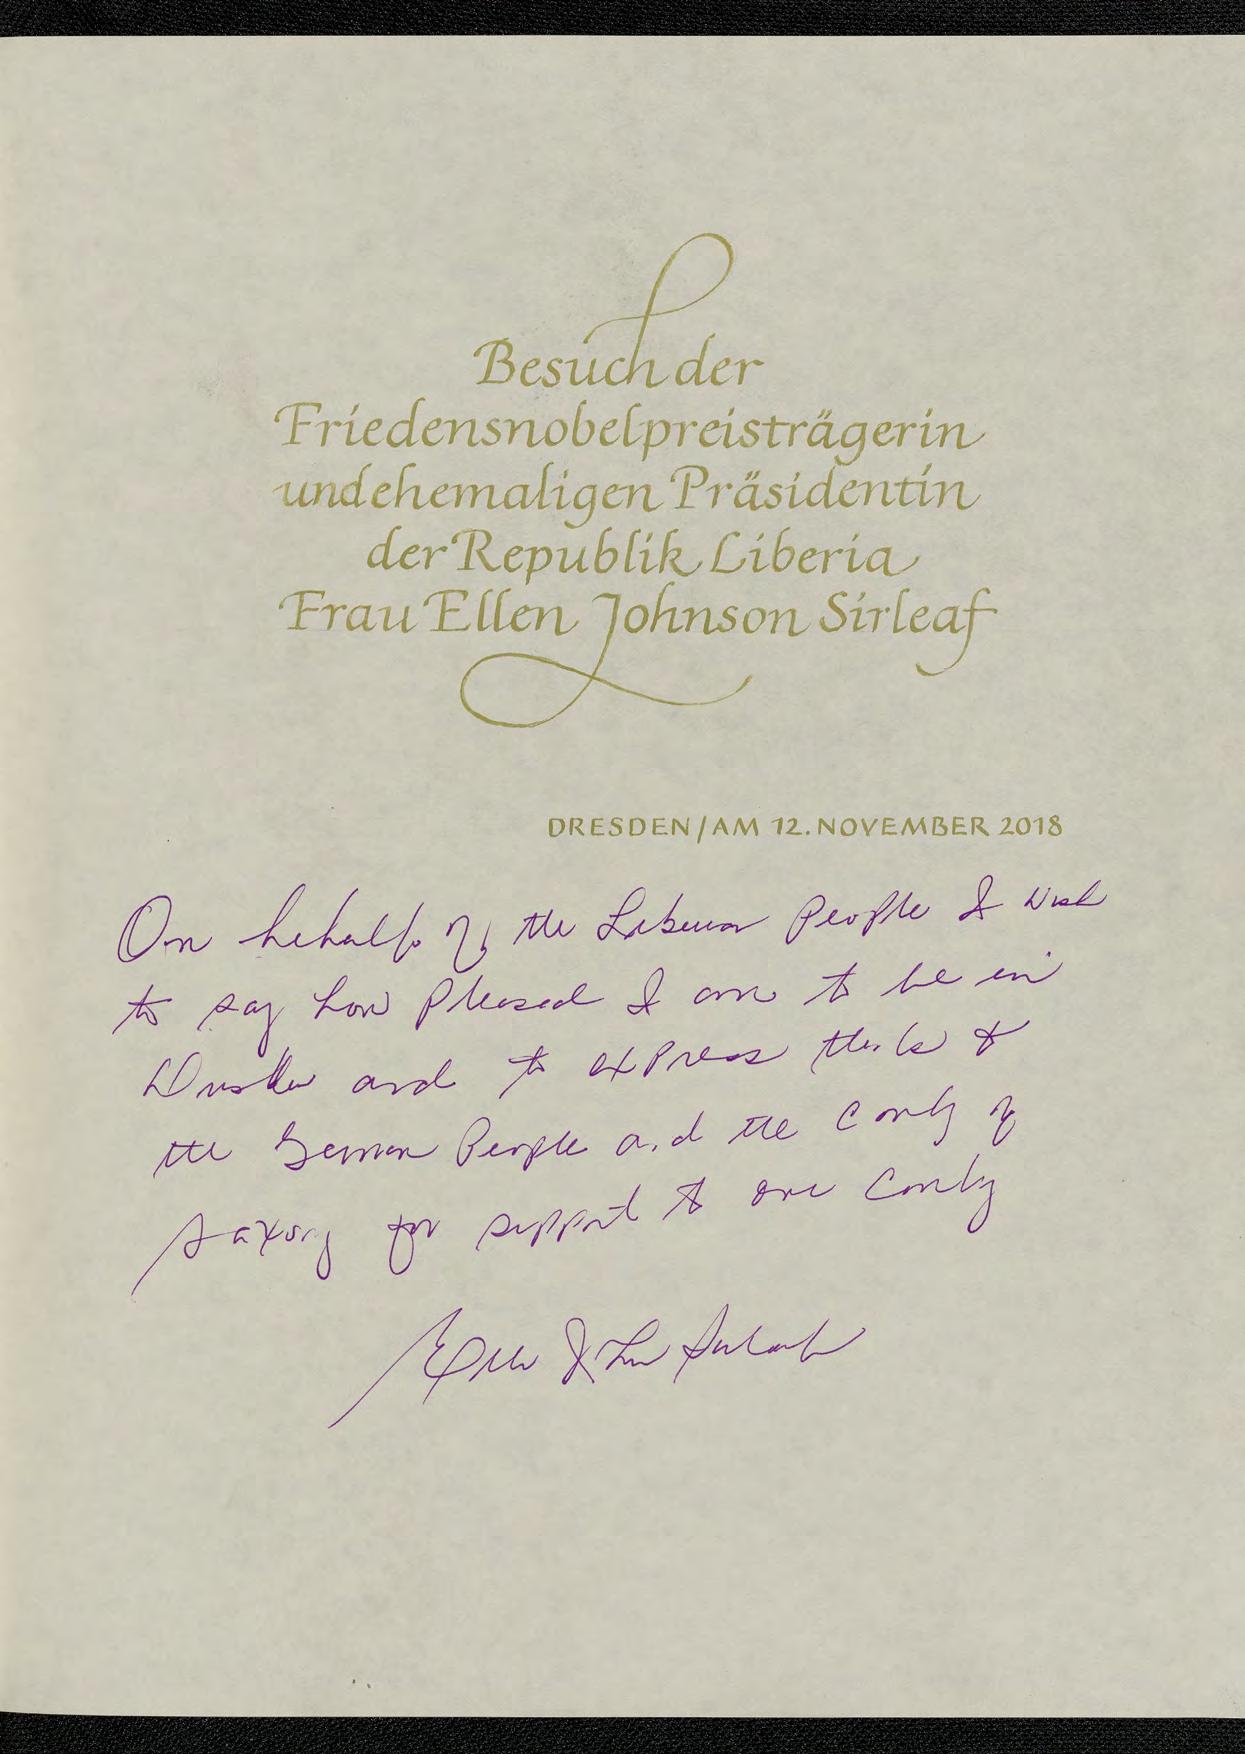 Besuch der
Friedensnobelpreisträgerin
und ehemaligen Präsidentin
der Republik Liberia
Frau Ellen Johnson Sirleaf
DRESDEN/AM 12. NOVEMBER 2018
On behalf of the Liberian People I wish
to say how pleased I am to be in
Dresden and to express thanks to
the German People and the County of
Saxony for support to our County
Ellen Johnson Sirleaf